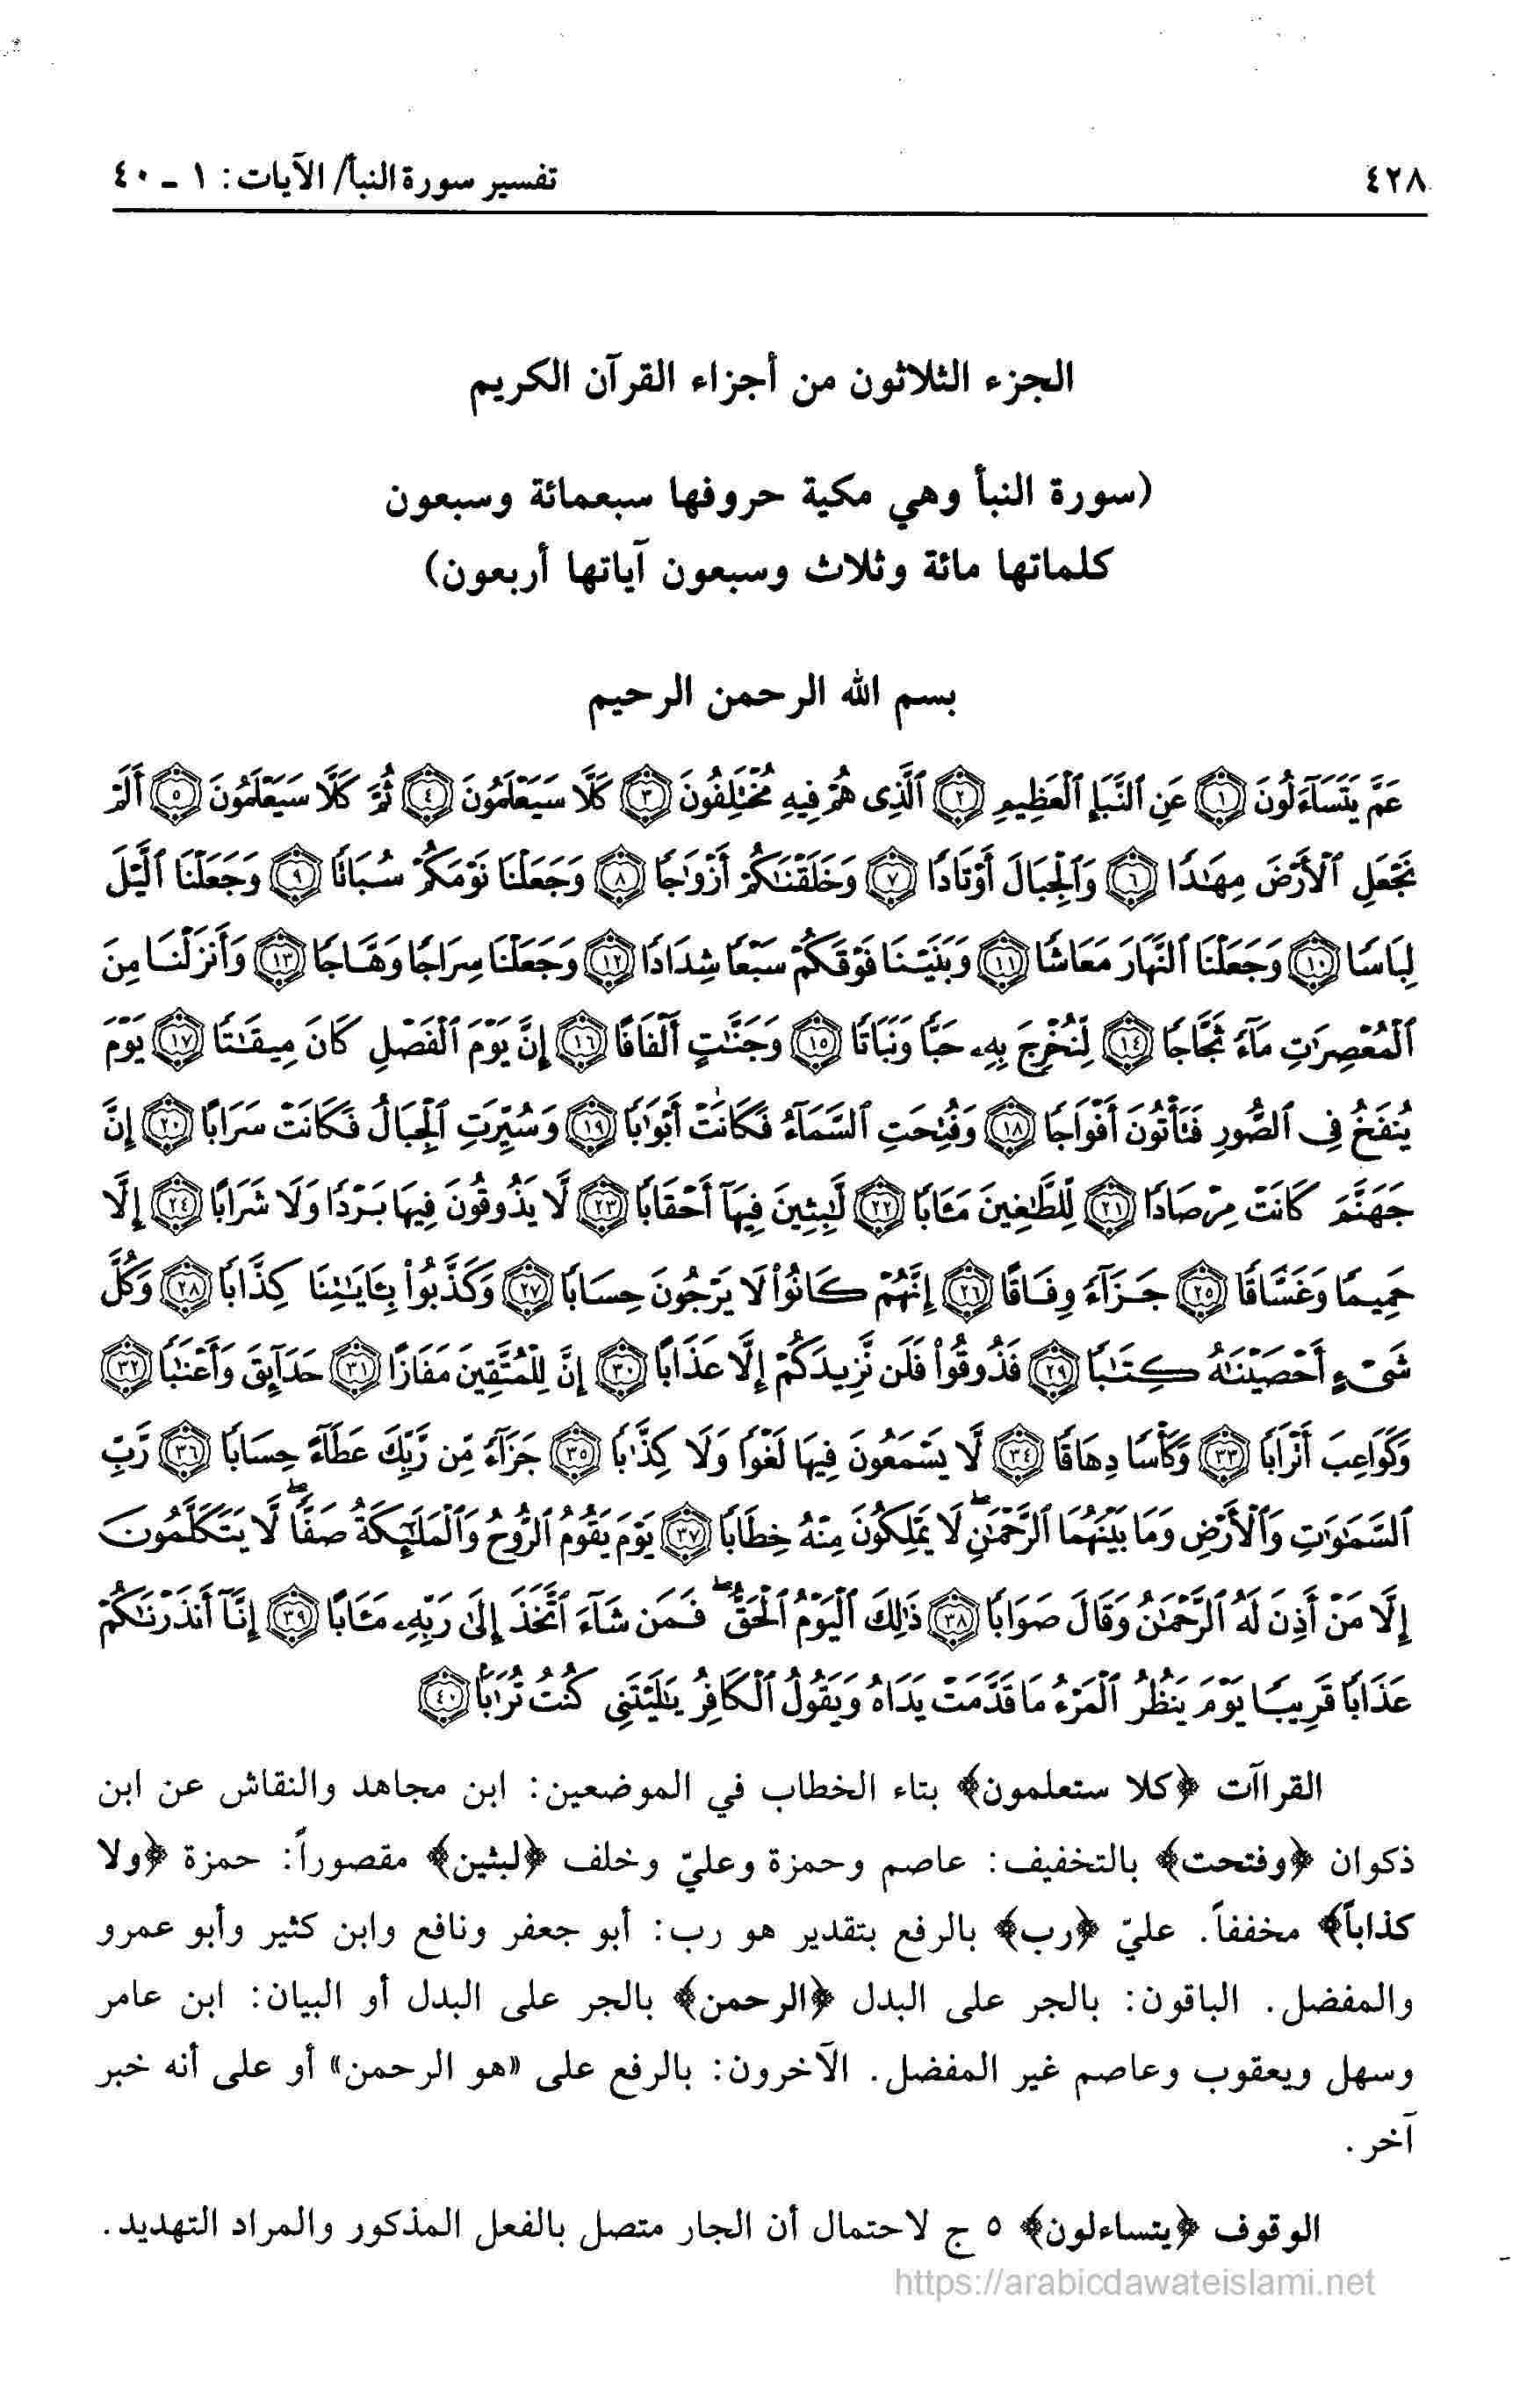 ٤٢٨
تفسير سورة النبأ/ الآيات: ١ ـ ٤٠
الجزء الثلاثون من أجزاء القرآن الكريم
(سورة النبأ وهي مكية حروفها سبعمائة وسبعون
كلماتها مائة وثلاث وسبعون آياتها أربعون)
بسم الله الرحمن الرحيم
عَمَّ يَتَسَآءَلُونَ ۝١ عَنِ ٱلنَّبَإِ ٱلْعَظِيمِ ۝٢ ٱلَّذِى هُمْ فِيهِ مُخْتَلِفُونَ ۝٣ كَلَّا سَيَعْلَمُونَ ۝٤ ثُمَّ كَلَّا سَيَعْلَمُونَ ۝٥ أَلَمْ
نَجْعَلِ ٱلْأَرْضَ مِهَٰدًا ۝٦ وَٱلْجِبَالَ أَوْتَادًا ۝٧ وَخَلَقْنَٰكُمْ أَزْوَٰجًا ۝٨ وَجَعَلْنَا نَوْمَكُمْ سُبَاتًا ۝٩ وَجَعَلْنَا ٱلَّيْلَ
لِبَاسًا ۝١٠ وَجَعَلْنَا ٱلنَّهَارَ مَعَاشًا ۝١١ وَبَنَيْنَا فَوْقَكُمْ سَبْعًا شِدَادًا ۝١٢ وَجَعَلْنَا سِرَاجًا وَهَّاجًا ۝١٣ وَأَنزَلْنَا مِنَ
ٱلْمُعْصِرَٰتِ مَآءً ثَجَّاجًا ۝١٤ لِّنُخْرِجَ بِهِۦ حَبًّا وَنَبَاتًا ۝١٥ وَجَنَّٰتٍ أَلْفَافًا ۝١٦ إِنَّ يَوْمَ ٱلْفَصْلِ كَانَ مِيقَٰتًا ۝١٧ يَوْمَ
يُنفَخُ فِى ٱلصُّورِ فَتَأْتُونَ أَفْوَاجًا ۝١٨ وَفُتِحَتِ ٱلسَّمَآءُ فَكَانَتْ أَبْوَٰبًا ۝١٩ وَسُيِّرَتِ ٱلْجِبَالُ فَكَانَتْ سَرَابًا ۝٢٠ إِنَّ
جَهَنَّمَ كَانَتْ مِرْصَادًا ۝٢١ لِّلطَّٰغِينَ مَـَٔابًا ۝٢٢ لَّٰبِثِينَ فِيهَآ أَحْقَابًا ۝٢٣ لَّا يَذُوقُونَ فِيهَا بَرْدًا وَلَا شَرَابًا ۝٢٤ إِلَّا
حَمِيمًا وَغَسَّاقًا ۝٢٥ جَزَآءً وِفَاقًا ۝٢٦ إِنَّهُمْ كَانُوا۟ لَا يَرْجُونَ حِسَابًا ۝٢٧ وَكَذَّبُوا۟ بِـَٔايَٰتِنَا كِذَّابًا ۝٢٨ وَكُلَّ
شَىْءٍ أَحْصَيْنَٰهُ كِتَٰبًا ۝٢٩ فَذُوقُوا۟ فَلَن نَّزِيدَكُمْ إِلَّا عَذَابًا ۝٣٠ إِنَّ لِلْمُتَّقِينَ مَفَازًا ۝٣١ حَدَآئِقَ وَأَعْنَٰبًا ۝٣٢
وَكَوَاعِبَ أَتْرَابًا ۝٣٣ وَكَأْسًا دِهَاقًا ۝٣٤ لَّا يَسْمَعُونَ فِيهَا لَغْوًا وَلَا كِذَّٰبًا ۝٣٥ جَزَآءً مِّن رَّبِّكَ عَطَآءً حِسَابًا ۝٣٦ رَّبِّ
ٱلسَّمَٰوَٰتِ وَٱلْأَرْضِ وَمَا بَيْنَهُمَا ٱلرَّحْمَٰنِ ۖ لَا يَمْلِكُونَ مِنْهُ خِطَابًا ۝٣٧ يَوْمَ يَقُومُ ٱلرُّوحُ وَٱلْمَلَٰٓئِكَةُ صَفًّا ۖ لَّا يَتَكَلَّمُونَ
إِلَّا مَنْ أَذِنَ لَهُ ٱلرَّحْمَٰنُ وَقَالَ صَوَابًا ۝٣٨ ذَٰلِكَ ٱلْيَوْمُ ٱلْحَقُّ ۖ فَمَن شَآءَ ٱتَّخَذَ إِلَىٰ رَبِّهِۦ مَـَٔابًا ۝٣٩ إِنَّآ أَنذَرْنَٰكُمْ
عَذَابًا قَرِيبًا يَوْمَ يَنظُرُ ٱلْمَرْءُ مَا قَدَّمَتْ يَدَاهُ وَيَقُولُ ٱلْكَافِرُ يَٰلَيْتَنِى كُنتُ تُرَٰبًۢا ۝٤٠
القراآت ﴿كلا ستعلمون﴾ بتاء الخطاب في الموضعين: ابن مجاهد والنقاش عن ابن
ذكوان ﴿وفتحت﴾ بالتخفيف: عاصم وحمزة وعليّ وخلف ﴿لبثين﴾ مقصوراً: حمزة ﴿ولا
كذاباً﴾ مخففاً. عليّ ﴿رب﴾ بالرفع بتقدير هو رب: أبو جعفر ونافع وابن كثير وأبو عمرو
والمفضل. الباقون: بالجر على البدل ﴿الرحمن﴾ بالجر على البدل أو البيان: ابن عامر
وسهل ويعقوب وعاصم غير المفضل. الآخرون: بالرفع على «هو الرحمن» أو على أنه خبر
آخر.
الوقوف ﴿يتساءلون﴾ ٥ ج لاحتمال أن الجار متصل بالفعل المذكور والمراد التهديد.
https://arabicdawateislami.net